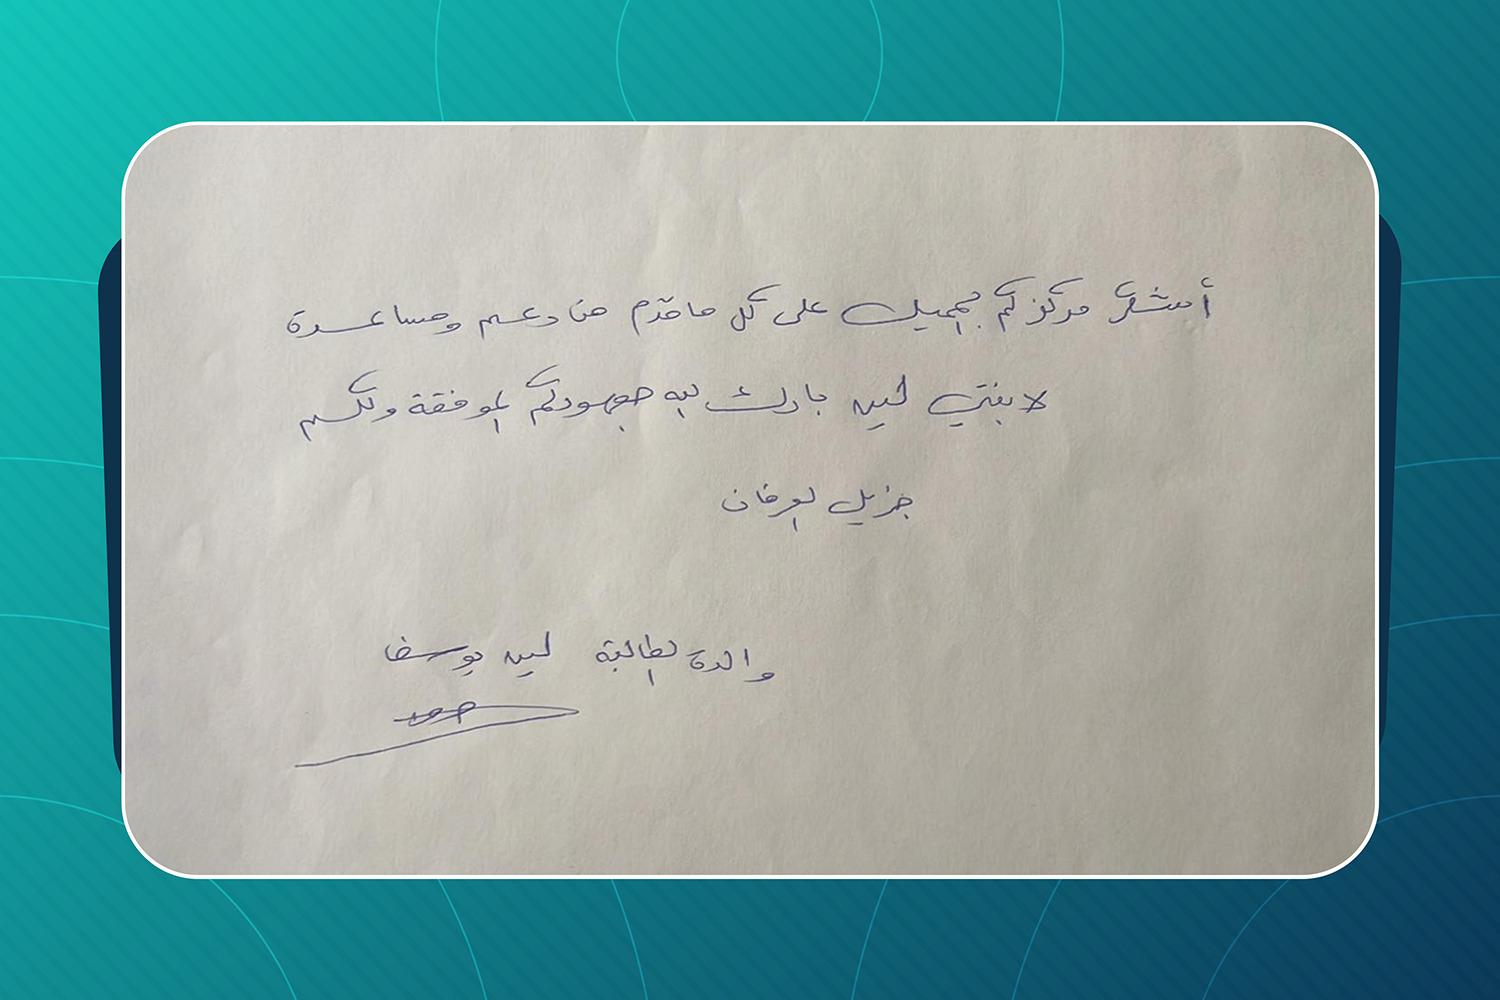 أشكر مركزكم الجميل على كل ما قدم من دعم ومساعدة
لابنتي لين بارك الله جهودكم الموفقة ولكم
جزيل العرفان
والدة الطالبة لين يوسف